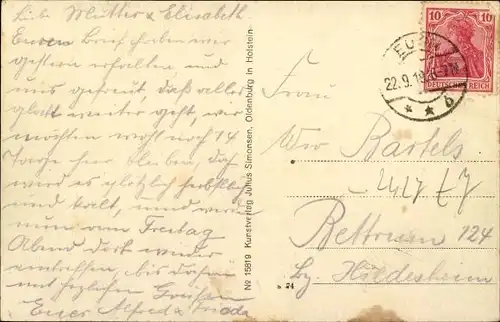 Liebe Mutter & Elisabeth
Euren Brief haben wir
gestern erhalten und
uns gefreut, daß alles
glatt weiter geht, wir
wohl noch 14
Tage hier bleiben,
wird es plötzlich
und kalt, und
nun am Freitag
Abend dort wieder
eintreffen, bis dahin
mit herzlichen Grüßen
Euer Alfred & Frieda
No 15619 Kunstverlag Julius Simonsen, Oldenburg in Holstein
10 10
DEUTSCHES REICH
EUTIN
22.9.19
* * b
Frau
Wwe Bartels
Bettrum 124
Bz. Hildesheim